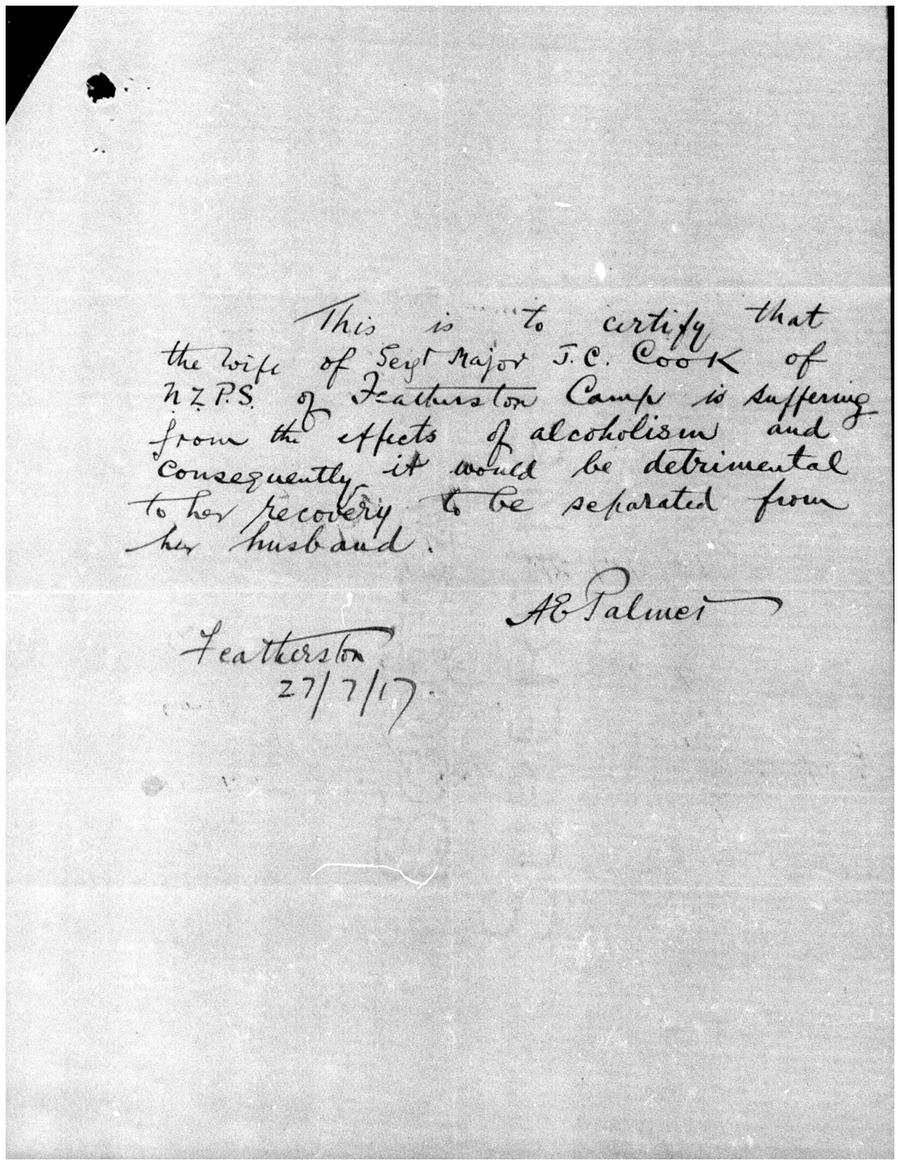 This is to certify that
the wife of Sergt Major J.C. Cook of
N.Z.P.S. of Featherston Camp is suffering
from the effects of alcoholism and
consequently it would be detrimental
to her recovery to be separated from
her husband.
AE Palmer
Featherston
27/7/17.